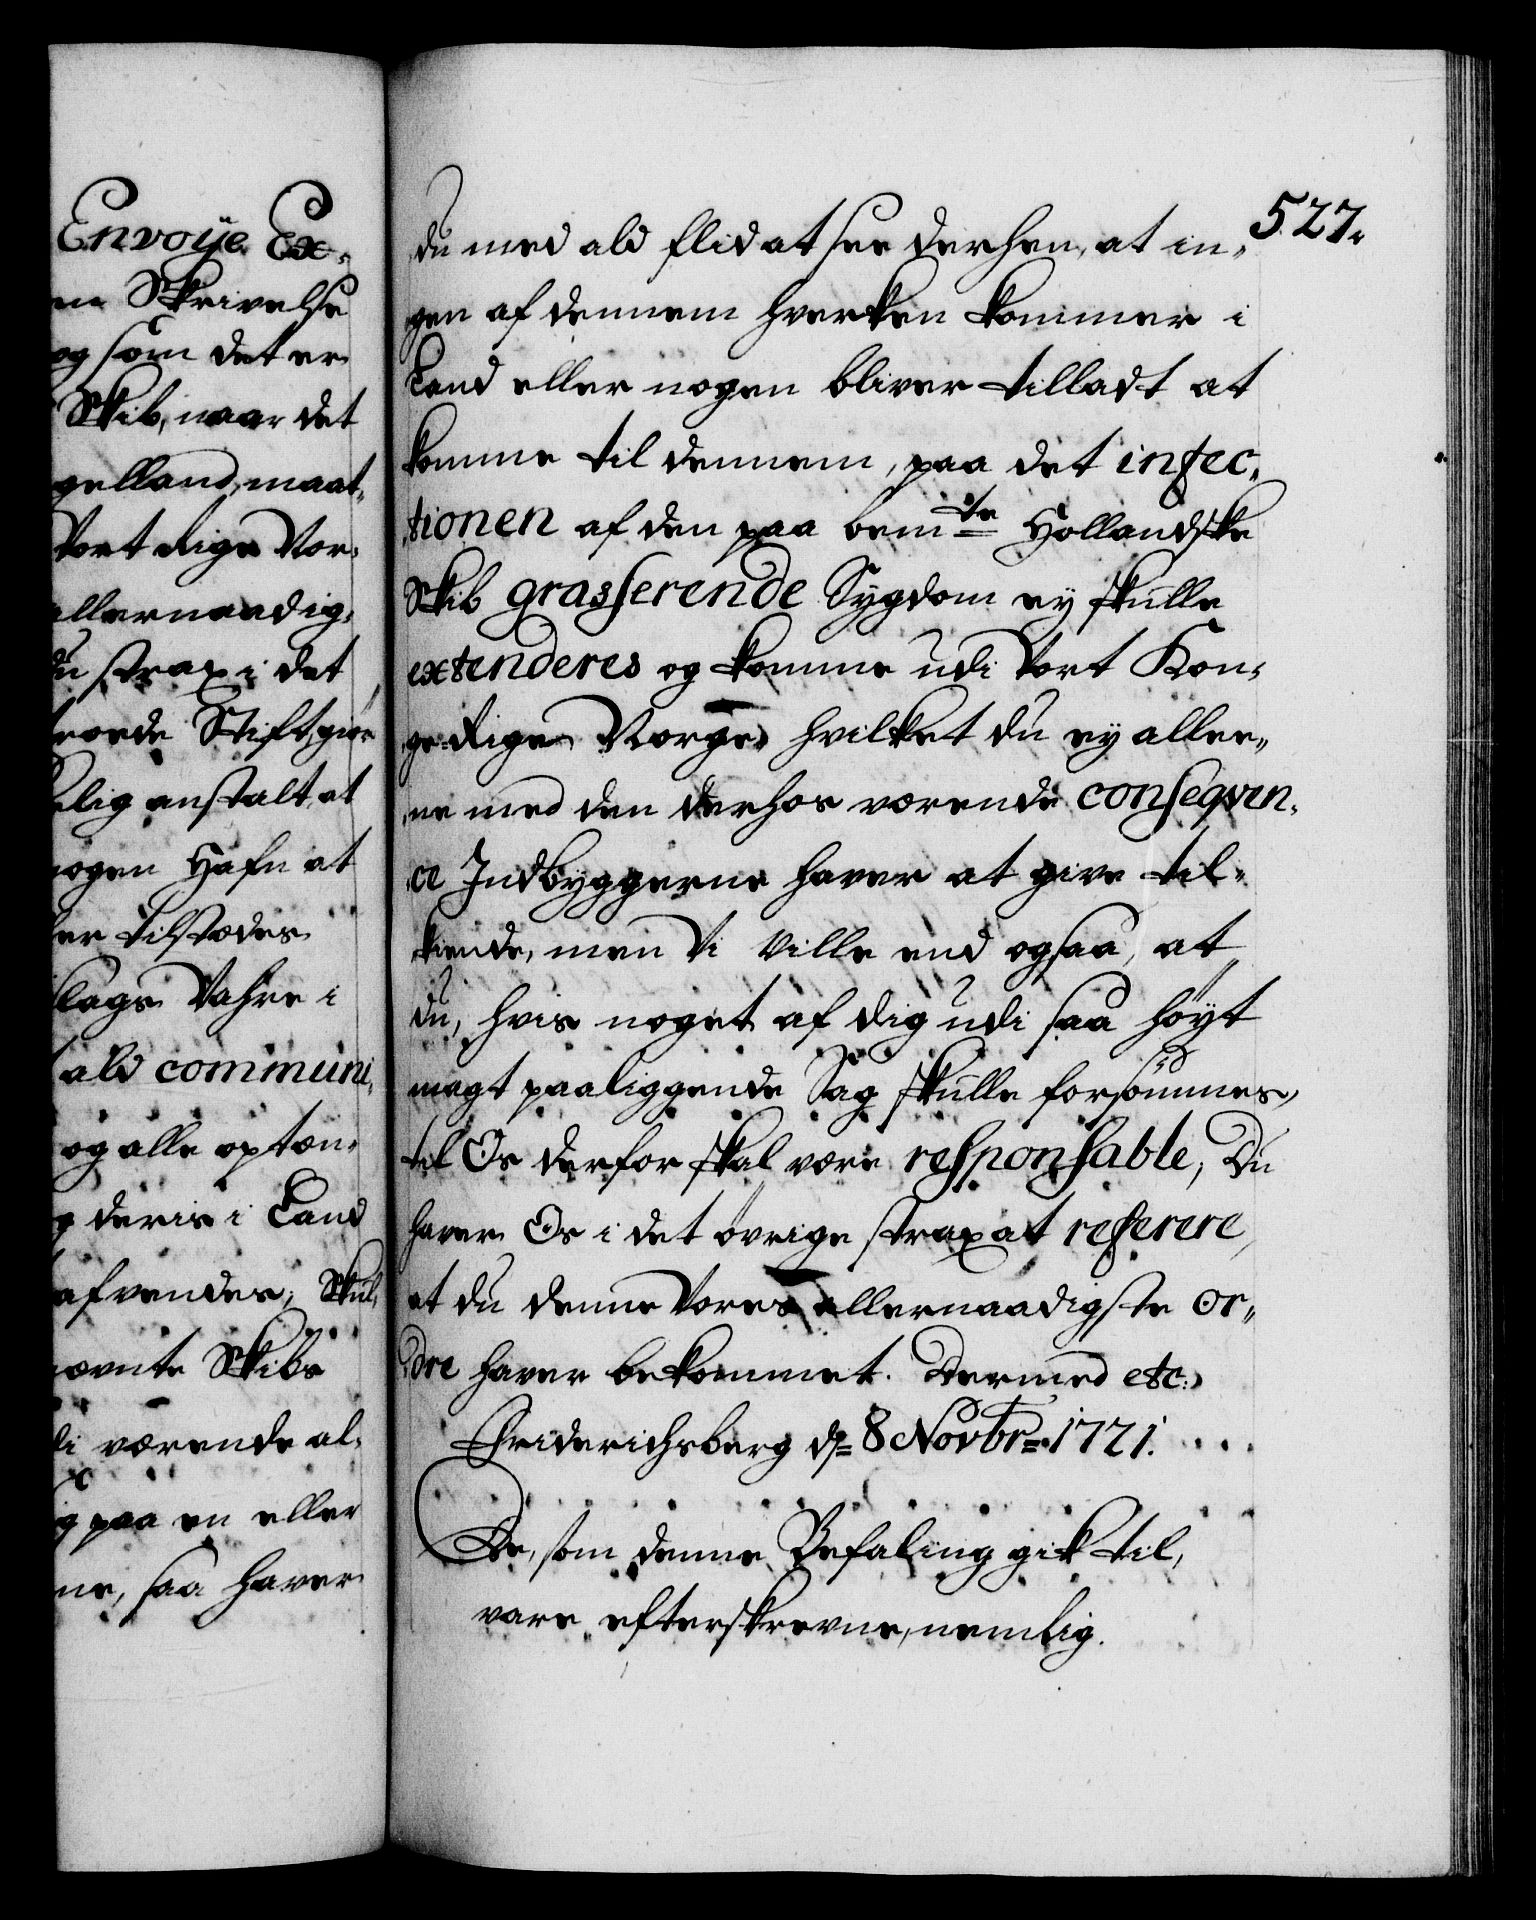 Envoÿe Ex-
ne Skrivelse
og som det er
Skib, naar det
gelland, maat-
Vort Rige Nor-
allernaadig-
du strax i det
troede Stift giør
elig anstalt, at
nogen Hafn at
er tilstædes
slags Vahre i
ald communi-
og alle optæn-
g deris i Land
afvendes, Skul-
nævnte Skibs
di værende al-
g paa en eller
ne, saa haver
527.
du med ald flid at see derhen, at in-
gen af dennem hverken kommer i
Land eller nogen bliver tilladt at
komme til dennem, paa det infec-
tionen af den paa bemte Hollandske
Skib grasserende Sygdom ey skulle
extenderes og komme udi Vort Kon-
ge-Rige Norge, hvilket du ey alle-
ne med den derhos værende conseqven-
ce Indbyggerne haver at give til-
kiende, men Vi Ville end ogsaa, at
du, hvis noget af dig udi saa høyt
magt paaliggende Sag skulle forsømmes,
til Os derfor skal være responsable, Du
haver Os i det øvrige strax at referere,
at du denne Vores allernaadigste Or-
dre haver bekommet. Dermed etc:
Friderichsberg d. 8 Novbr. 1721.
De, som denne Befaling gik til,
vare efterskrevne, nemlig.